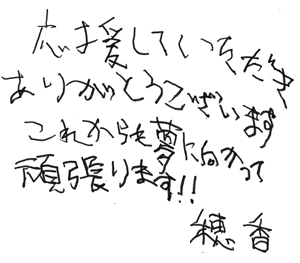 応援していただき
ありがとうございます
これからも夢に向かって
頑張ります!!
穂香